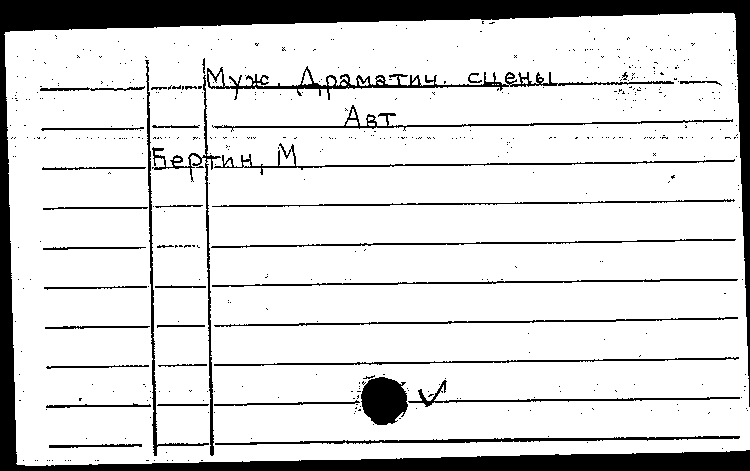 Муж. Драматич. сцены
Авт.
Бертин, М.